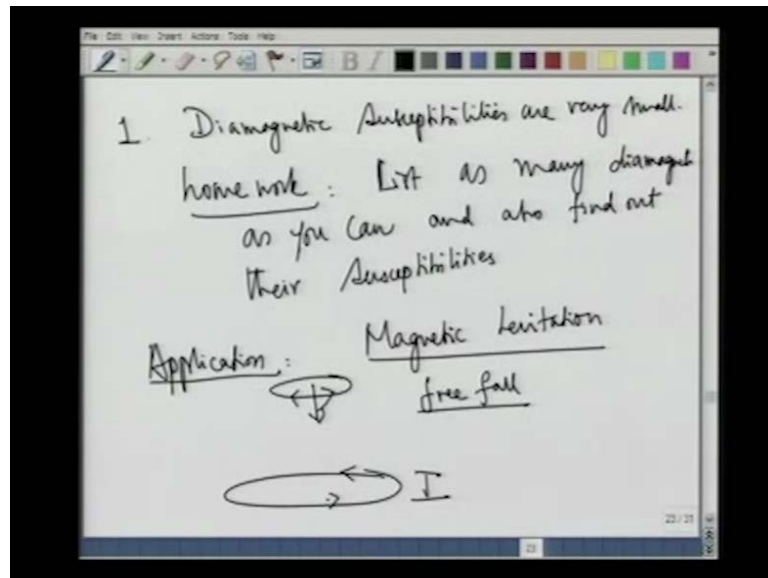 File Edit View Insert Actions Tools Help
B I
1. Diamagnetic Susceptibilities are very small.
home work : List as many diamagnets
as you can and also find out
their Susceptibilities
Application : Magnetic Levitation
free fall
I
23/31
23